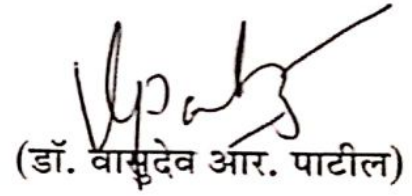 (डॉ. वासुदेव आर. पाटील)